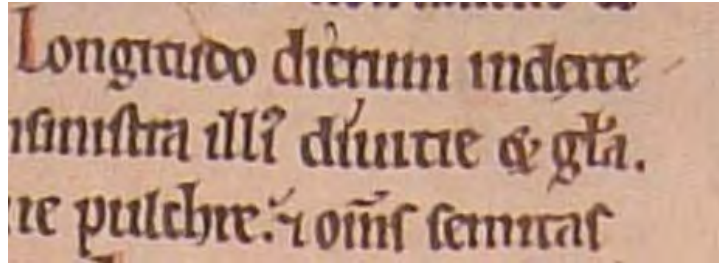 Longitudo dierum indexte
nsinistra illiꝰ diuitie & gła.
ie pulchre. ⁊ om̅s semitas